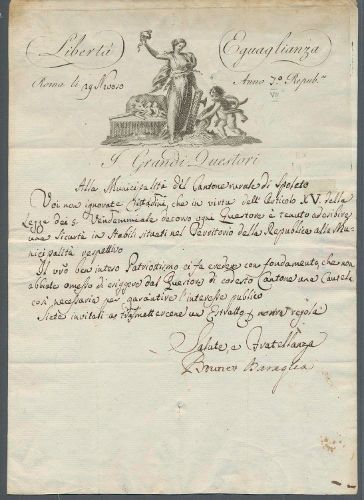 Libertà Eguaglianza
Roma li 29 Nevoso Anno 7.º Repub.no
VII
I Grandi Questori
Alla Municipalità del Cantone rurale di Spoleto
Voi non ignorate Cittadini, che in virtù dell'Articolo XV. della
Legge dei 5. Vendemmiale decorso ogni Questore è tenuto a dare
una Sicurtà in Stabili situati nel Territorio della Republica alla Mu-
nicipalità respettivo
Il vro ben inteso Patriotismo ci fa credere con fondamento, che non
abbiate omesso di esiggere dal Questore di codesto Cantone una Cautela
così necessaria per garantire l'interesse publico
Siete invitati a trasmettercene un Estratto nostra regola
Salute, e Fratellanza
Bruner